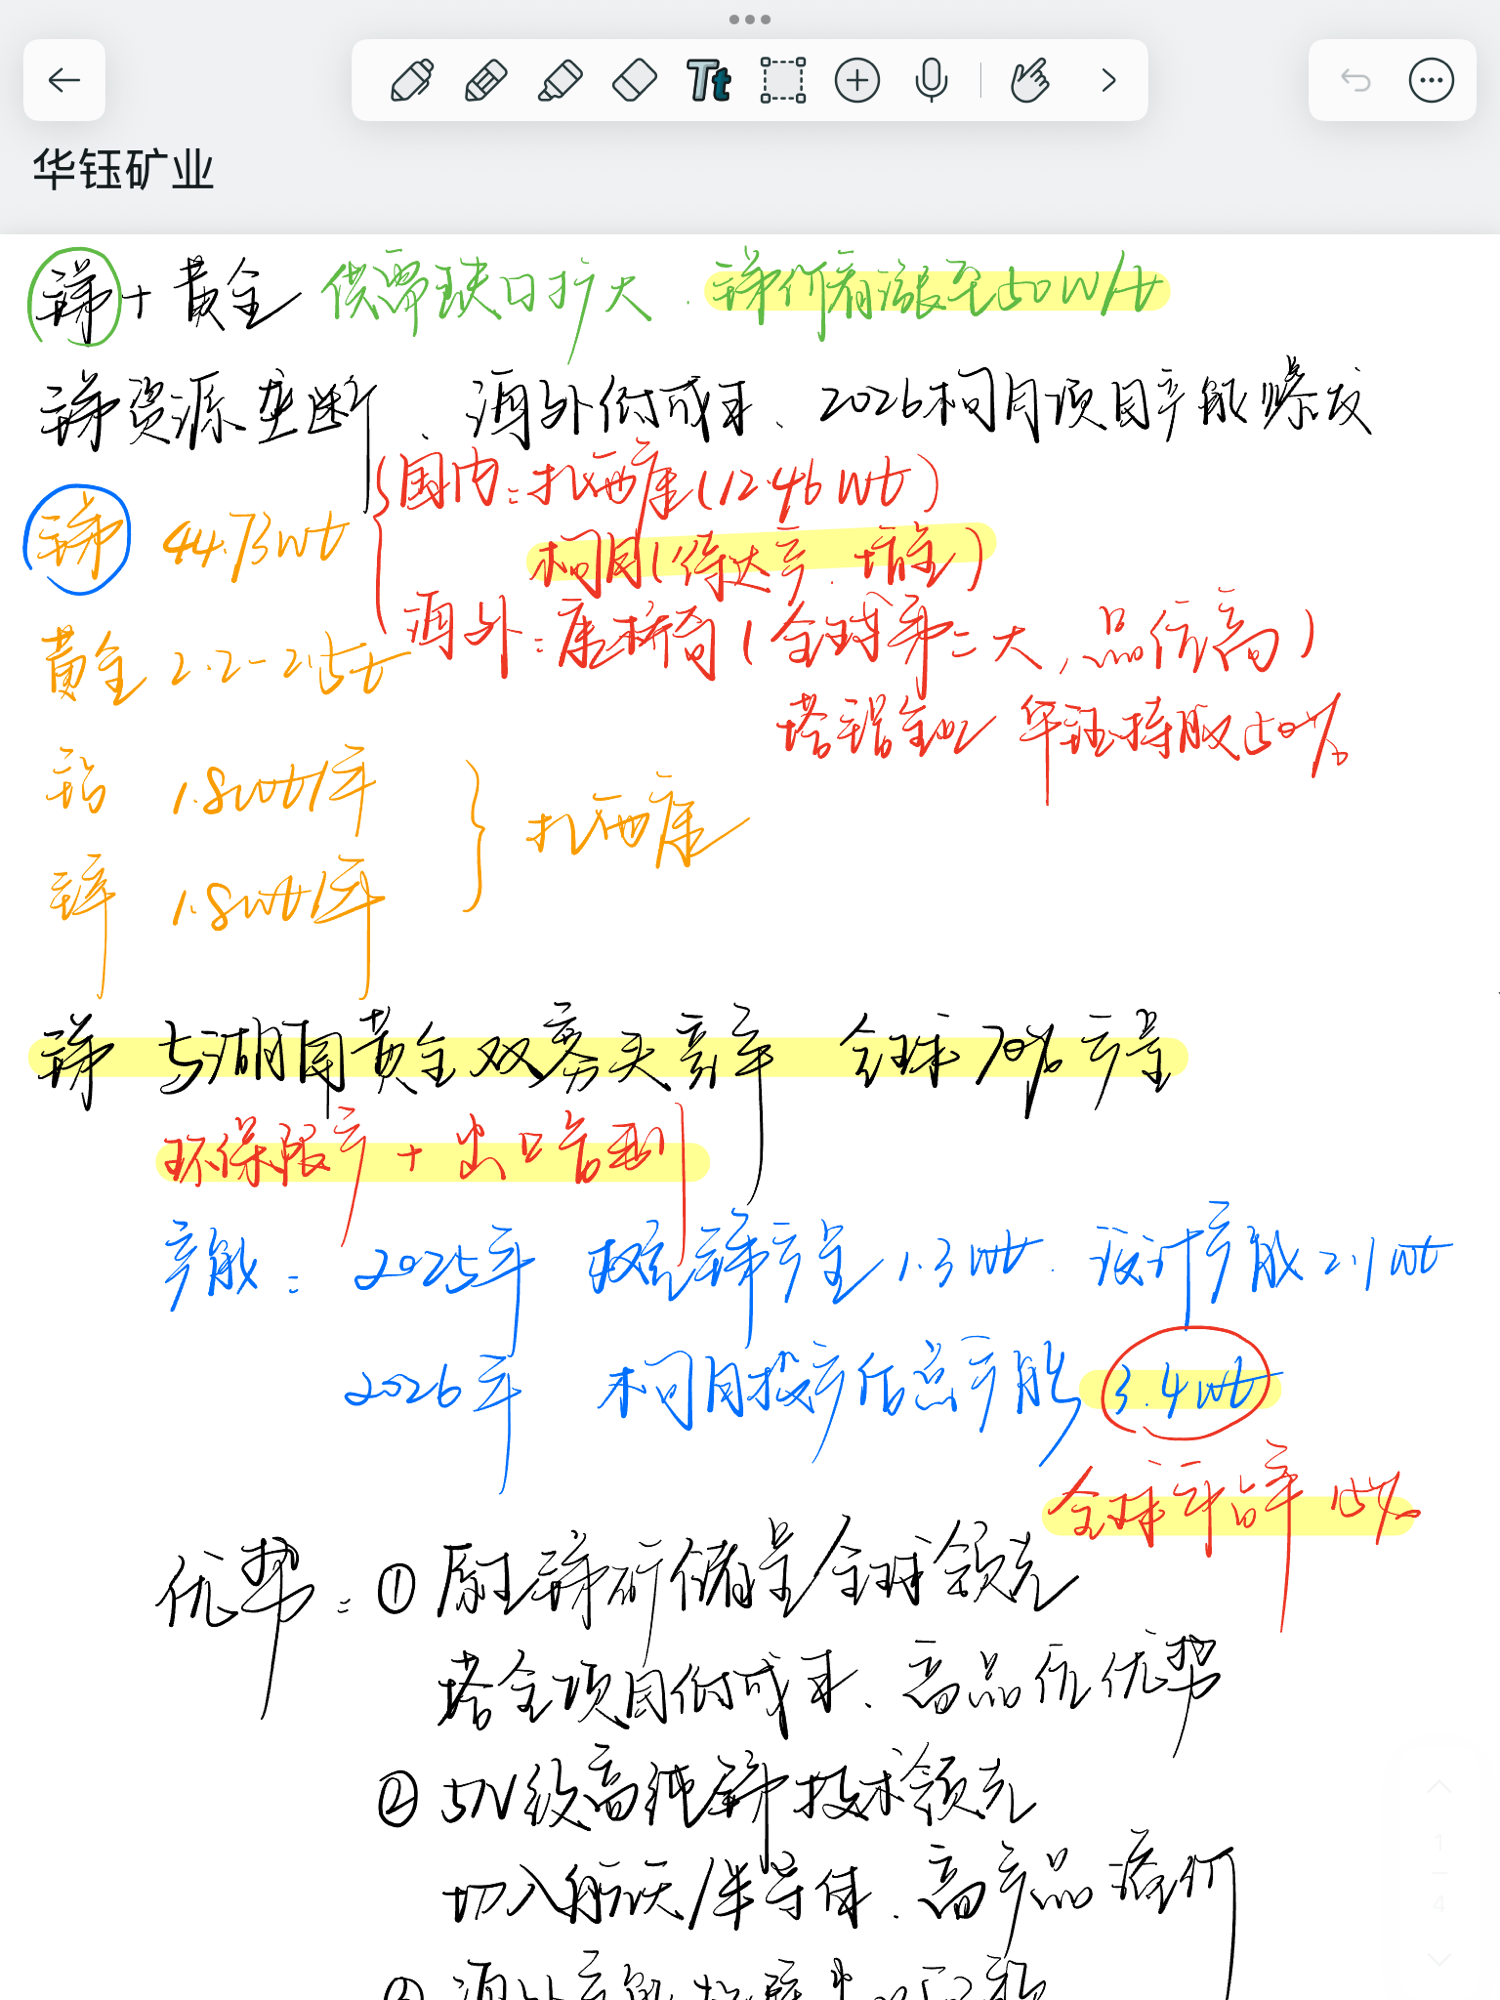 华钰矿业
锑+黄金 供需缺口扩大. 锑价看涨至50W/t
锑资源垄断 海外低成本、2026柯月项目产能爆发
锑 44.73wt 国内:扎西康(12.46wt)
柯月(待达产.增全)
黄金 2.2-2.5t 海外:康桥奇(全球第二大,品位高)
塔铝金业 华钰持股50%
铅 1.8wt/年 扎西康
锌 1.8wt/年
锑 与湖南黄金双寡头 全球70%产量
环保限产+出口管制
产能: 2025年 权益锑产量1.3wt. 设计产能2.1wt
2026年 柯月投产后总产能 3.4wt
全球市占率15%
优势: ① 原生锑矿储量全球领先
塔金项目低成本、高品位优势
② 5N级高纯锑技术领先
切入航天/半导体.高产品溢价
③ 海外产能
1
4